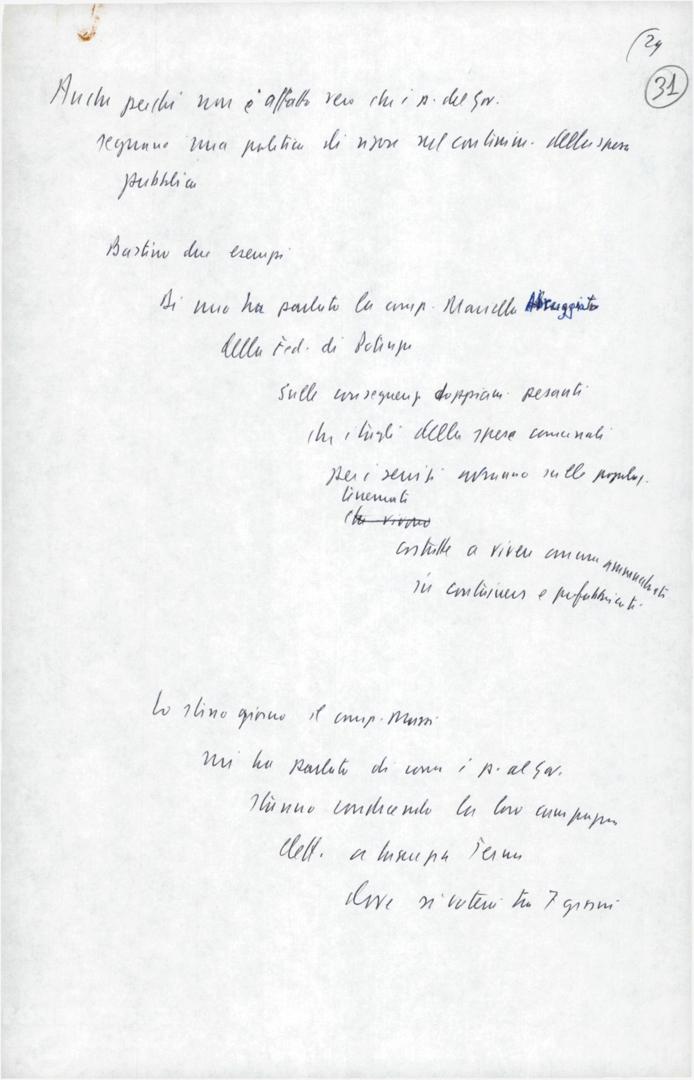 (24
31
Anche perché non è affatto vero che i p. del Gov.
seguano una politica di rigore nel contenim. della spesa
pubblica
Bastino due esempi
Di uno ha parlato la comp. Marcella
della Fed. di Potenza
sulle conseguenz doppiam. pesanti
che i tagli della spesa comunali
per i servizi avranno sulle popolaz.
terremotati
che vivono
costrette a vivere ancora ammucchiati
in containers e prefabbricati.
Lo stesso giorno il comp. Mussi
mi ha parlato di come i p. al Gov.
stanno conducendo la loro campagna
elett. a
dove si voterà tra 7 giorni